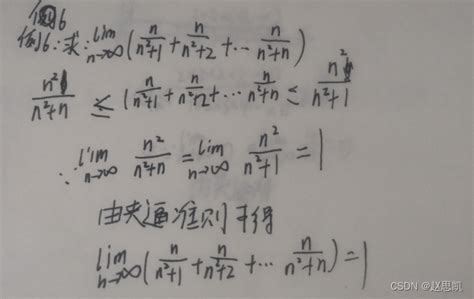 例6
例6:求:lim n→∞ (n/(n²+1) + n/(n²+2) + … n/(n²+n))
n²/(n²+n) ≤ (n/(n²+1) + n/(n²+2) + … n/(n²+n) ≤ n²/(n²+1)
∵ lim n→∞ n²/(n²+n) = lim n→∞ n²/(n²+1) = 1
由夹逼准则可得
lim n→∞ (n/(n²+1) + n/(n²+2) + … n/(n²+n)) = 1
CSDN @赵思凯